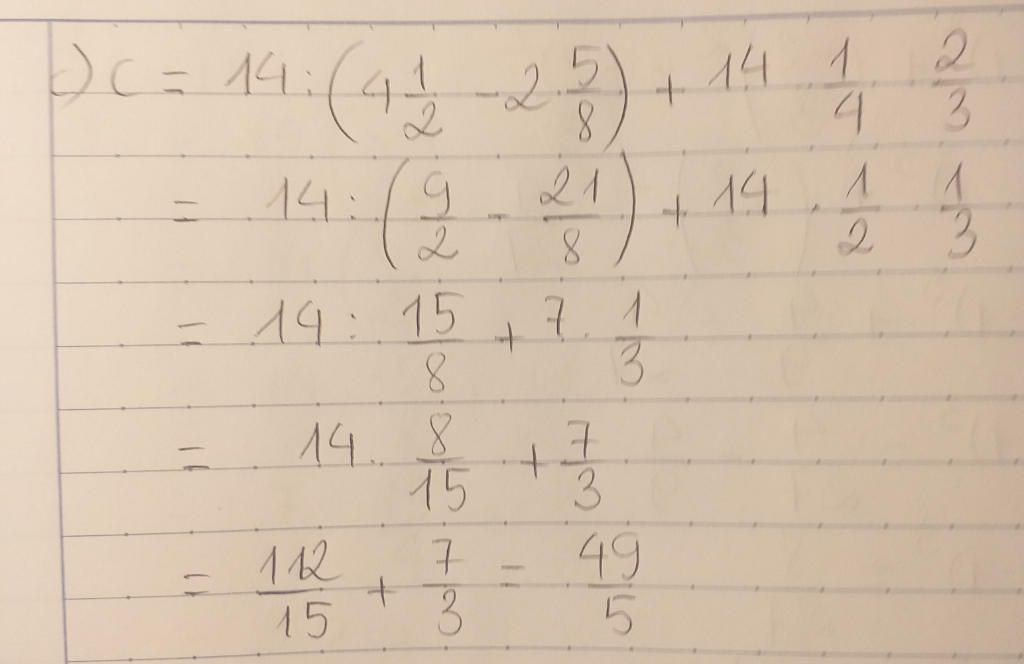 c) C = 14 : (4 1/2 - 2 5/8) + 14 · 1/4 · 2/3
= 14 : (9/2 - 21/8) + 14 · 1/2 · 1/3
= 14 : 15/8 + 7 · 1/3
= 14 · 8/15 + 7/3
= 112/15 + 7/3 = 49/5